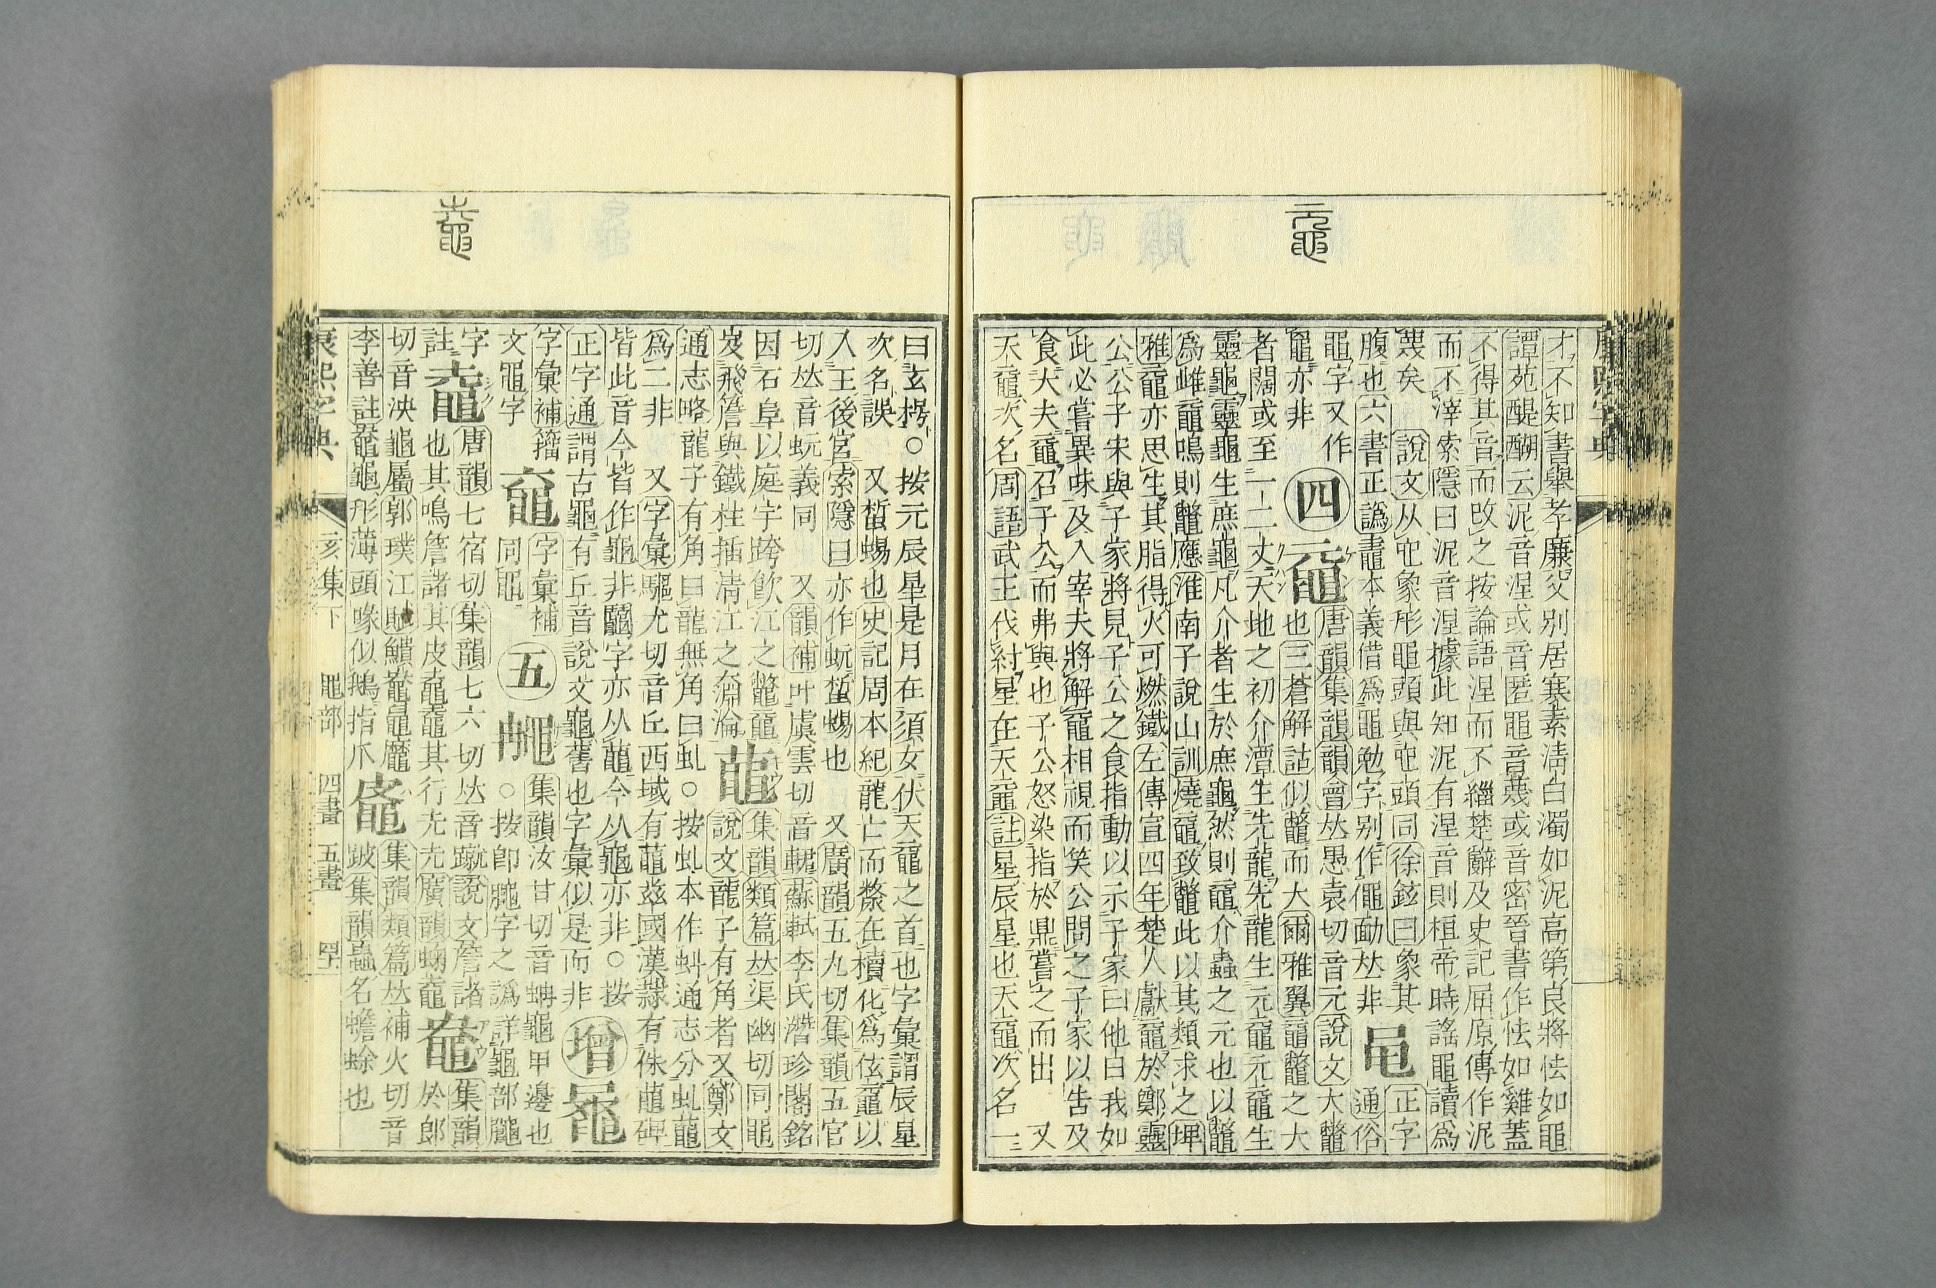 才不知書舉孝廉父別居寒素淸白濁如泥高第良將怯如黽
譚苑醍醐云泥音涅或音匿黽音蔑或音密晉書作怯如雞蓋
不得其音而改之按論語涅而不緇楚辭及史記屈原傳作泥
而不滓索隱曰泥音涅據此知泥有涅音則桓帝時謠黽讀爲
蔑矣 說文从它象形黽頭與它頭同徐鉉曰象其
腹也六書正譌鼃本義借爲黽勉字別作僶勔𠀤非
黾 正字通俗
黽字又作
鼀亦非
四
黿 唐韻集韻韻會𠀤愚袁切音元說文大鼈
也三蒼解詁似鼈而大爾雅翼黿鼈之大
者闊或至一二丈天地之初介潭生先龍先龍生元黿元黿生
靈龜靈龜生庶龜凡介者生於庶龜然則黿介蟲之元也以鼈
爲雌黿鳴則鼈應淮南子說山訓燒黿致鼈此以其類求之埤
雅黿亦思生其脂得火可燃鐵左傳宣四年楚人獻黿於鄭靈
公公子宋與子家將見子公之食指動以示子家曰他日我如
此必嘗異味及入宰夫將解黿相視而笑公問之子家以告及
食大夫黿召子公而弗與也子公怒染指於鼎嘗之而出 又
天黿次名周語武王伐紂星在天黿註星辰星也天黿次名一
曰玄枵○按元辰星是月在須女伏天黿之首也字彙謂辰星
次名誤 又蜤蜴也史記周本紀龍亡而漦在櫝化爲伭黿以
入王後宮索隱曰亦作蚖蜤蜴也 又廣韻五九切集韻五官
切𠀤音蚖義同 又韻補叶虞雲切音輑蘇軾李氏潛珍閣銘
因石阜以庭宇跨飮江之鼈黿
岌飛簷與鐵柱插淸江之淵淪
𪚺 集韻類篇𠀤渠幽切同黽
說文龍子有角者又鄭文
通志略龍子有角曰龍無角曰虬○按虬本作蚪通志分虬𪚺
爲二非 又字彙驅尤切音丘西域有𪚺玆國漢隸有侏𪚺碑
皆此音今皆作龜非鬮字亦从𪚺今从龜亦非○按
正字通謂古龜有丘音說文龜舊也字彙似是而非
增
字彙補籀
文黿字
字彙補
同黽
五
集韻汝甘切音蚺龜甲邊也
○按卽𪚮字之譌詳龜部𪚮
字
註
鼀 唐韻七宿切集韻七六切𠀤音蹴說文詹諸
也其鳴詹諸其皮鼀鼀其行𡴆𡴆廣韻蝍鼀
於郎
切音泱龜屬郭璞江賦鱝鼊𪓟麛
李善註𪓟龜形薄頭喙似鵝指爪
集韻類篇𠀤補火切音
跛集韻蟲名蟾蜍也
康煕字典
亥集下
黽部
四畫
五畫